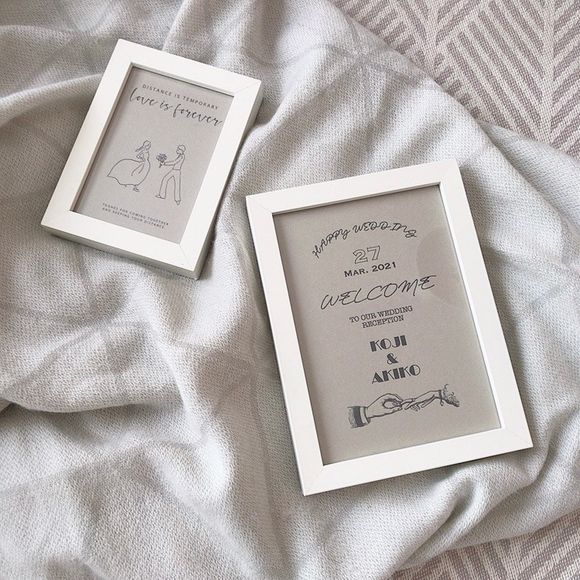 DISTANCE IS TEMPORARY
love is forever
THANKS FOR COMING TOGETHER
AND KEEPING YOUR DISTANCE
HAPPY WEDDING
27
MAR. 2021
WELCOME
TO OUR WEDDING
RECEPTION
KOJI
&
AKIKO